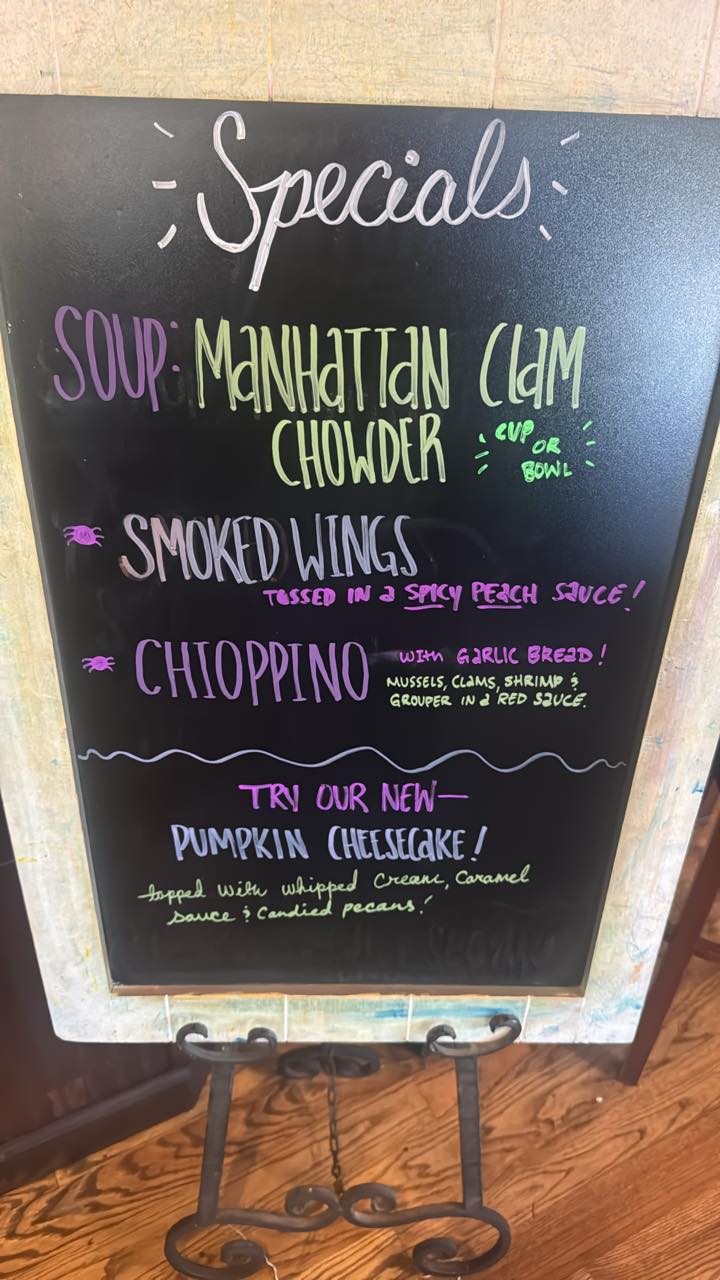 Specials
SOUP: MaNHaTTaN ClaM
CHOWDER
CUP
OR
BOWL
SMOKED WINGS
TOSSED IN a SPICY PEACH SaUCE!
CHIOPPINO
WITH GaRLIC BREaD!
MUSSELS, ClaMS, SHRIMP &
GROUPER IN a RED SaUCE.
TRY OUR NEW—
PUMPKIN CHEESECaKE!
topped with whipped Cream, Caramel
sauce & Candied pecans!